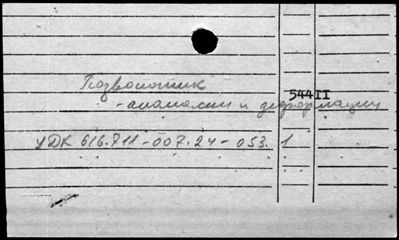 Позвоночник
544II
- аномалии и деформации
УДК 616.711-007.24-053.1